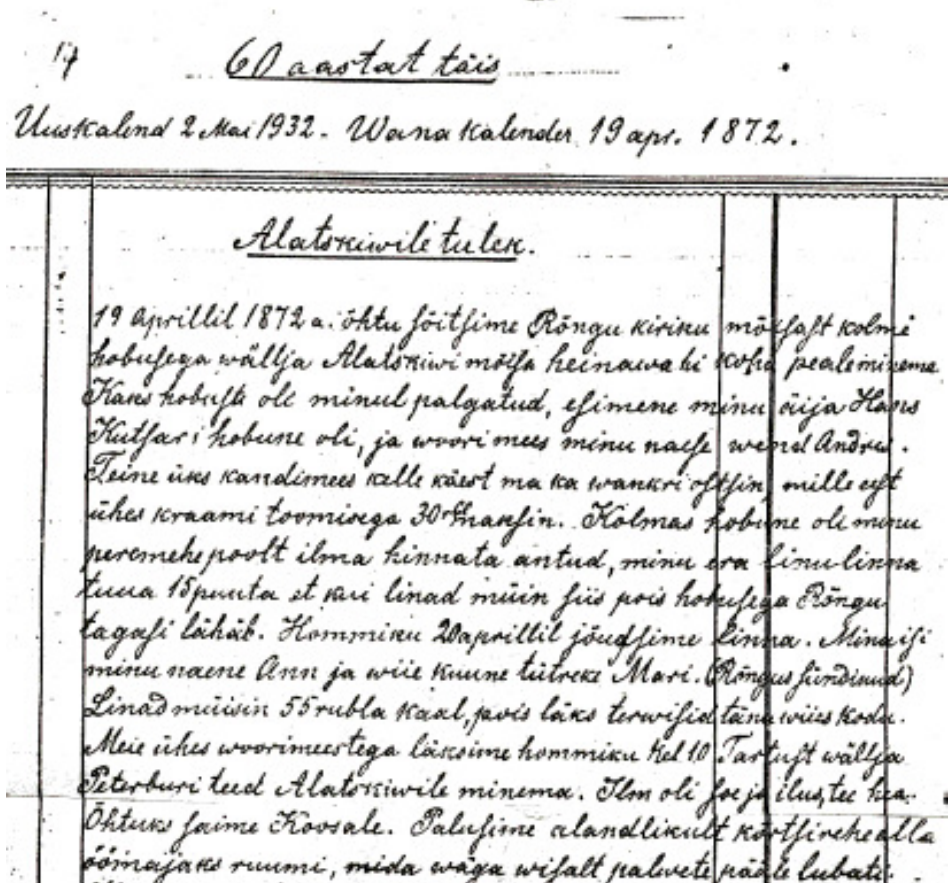 14
60 aastat täis
Uuskalend 2 Mai 1932. Wana kalender 19 apr. 1872.
Alatskiwile tulek.
19 Aprillil 1872 a. õhtu sõitsime Rõngu kiriku mõisast kolme
hobusega wällja Alatskiwi mõisa heinawahi koha peale minema
Kaks hobust oli minul palgatud, esimene minu äija Hans
Kutsari hobune oli, ja woorimees minu naese wend Andres.
Teine üks kandimees kelle käest ma ka wankri ostsin, mille est
ühes kraami toomisega 30 rbl maksin. Kolmas hobune oli minu
peremehe poolt ilma hinnata antud, minu era linu linna
tuua 15 puuta et kui linad müin siis pois hobusega Rõngu
tagasi lähäb. Hommiku 20 aprillil jõudsime linna. Mina isi
minu naene Ann ja wiie kuune tütreke Mari. (Rõngus sündinud)
Linad müisin 55 rubla kaal, pois läks terwisid täna wiies kodu.
Meie ühes woorimeestega läksime hommiku kel 10 Tartust wällja
Peterburi teed Alatskiwile minema. Ilm oli soe ja ilus, tee hea.
Õhtuks saime Koosale. Palusime alandlikult kõrtsi rehe alla
öömajaks ruumi, mida wäga wisalt palwete pääle lubati.